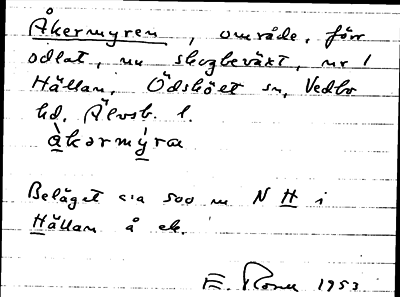 Åkermyren, område, förr
odlat, nu skogbeväxt, nr 1
Hällan, Ödsköet sn, Vedbo
hd, Älvsb. l.
àkərmýra
Beläget c:a 500 m N H i
Hällan å ek.
E. 1953